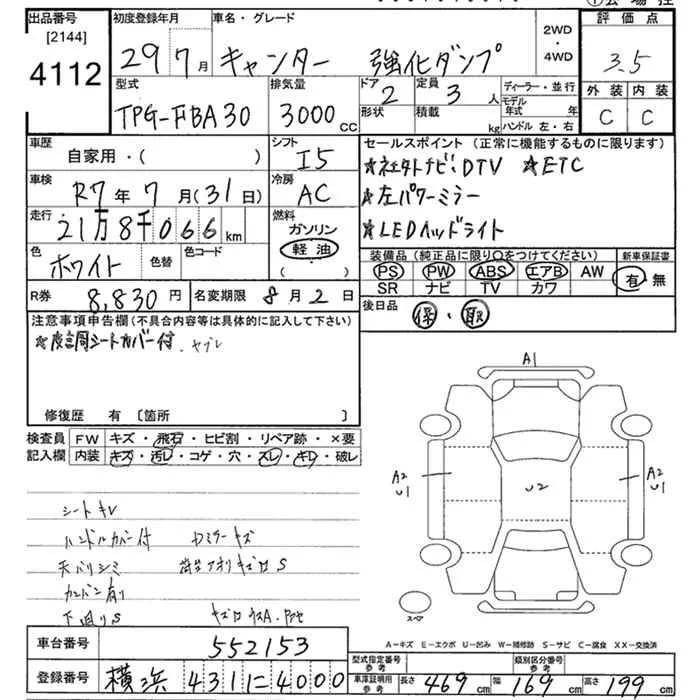 出品番号 初度登録年月 車名・グレード 評価点
[2144]
4112
29 7月 キャンター 強化ダンプ 2WD・4WD 3.5
型式 排気量 ドア 定員 ディーラー・並行 外装 内装
TPG-FBA30 3000CC 2 3人 モデル年式 年 C C
形状 積載 kg ハンドル 左・右
車歴 シフト セールスポイント (正常に機能するものに限ります)
自家用・( ) I5
車検 冷房 ☆社外ナビ・DTV ☆ETC
R7年7月(31日) AC ☆左パワーミラー
走行 燃料 ☆LEDヘッドライト
21万8千066km ガソリン
色 色替 色コード 軽油 装備品 (純正品に限り○をつけてください) 新車保証書
ホワイト ( ) PS PW ABS エアB AW 有・無
SR ナビ TV カワ
R券 8,830円 名変期限 8月2日 後日品 保・取
注意事項申告欄(不具合内容等は具体的に記入して下さい)
シートカバー付.ヤブレ
A1
修復歴 有 〔箇所 〕
検査員 FW キズ・飛石・ヒビ割・リペア跡・×要
記入欄 内装 キズ・汚レ・コゲ・穴・スレ・キレ・破レ
A2 U1 U2 A2 U1
シートキレ
ハンドルカバー付 Dミラーキズ
天バリシミ アオリキズロS
カンバン有り
下廻りS
スペア
A-キズ E-エクボ U-凹み W-補修跡 S-サビ C-腐食 XX-交換済
車台番号 552153
型式指定番号 参考 類別区分番号 参考
登録番号 横浜 431 に 4000 車庫証明用 参考 長さ 469cm 幅 169cm 高さ 199cm